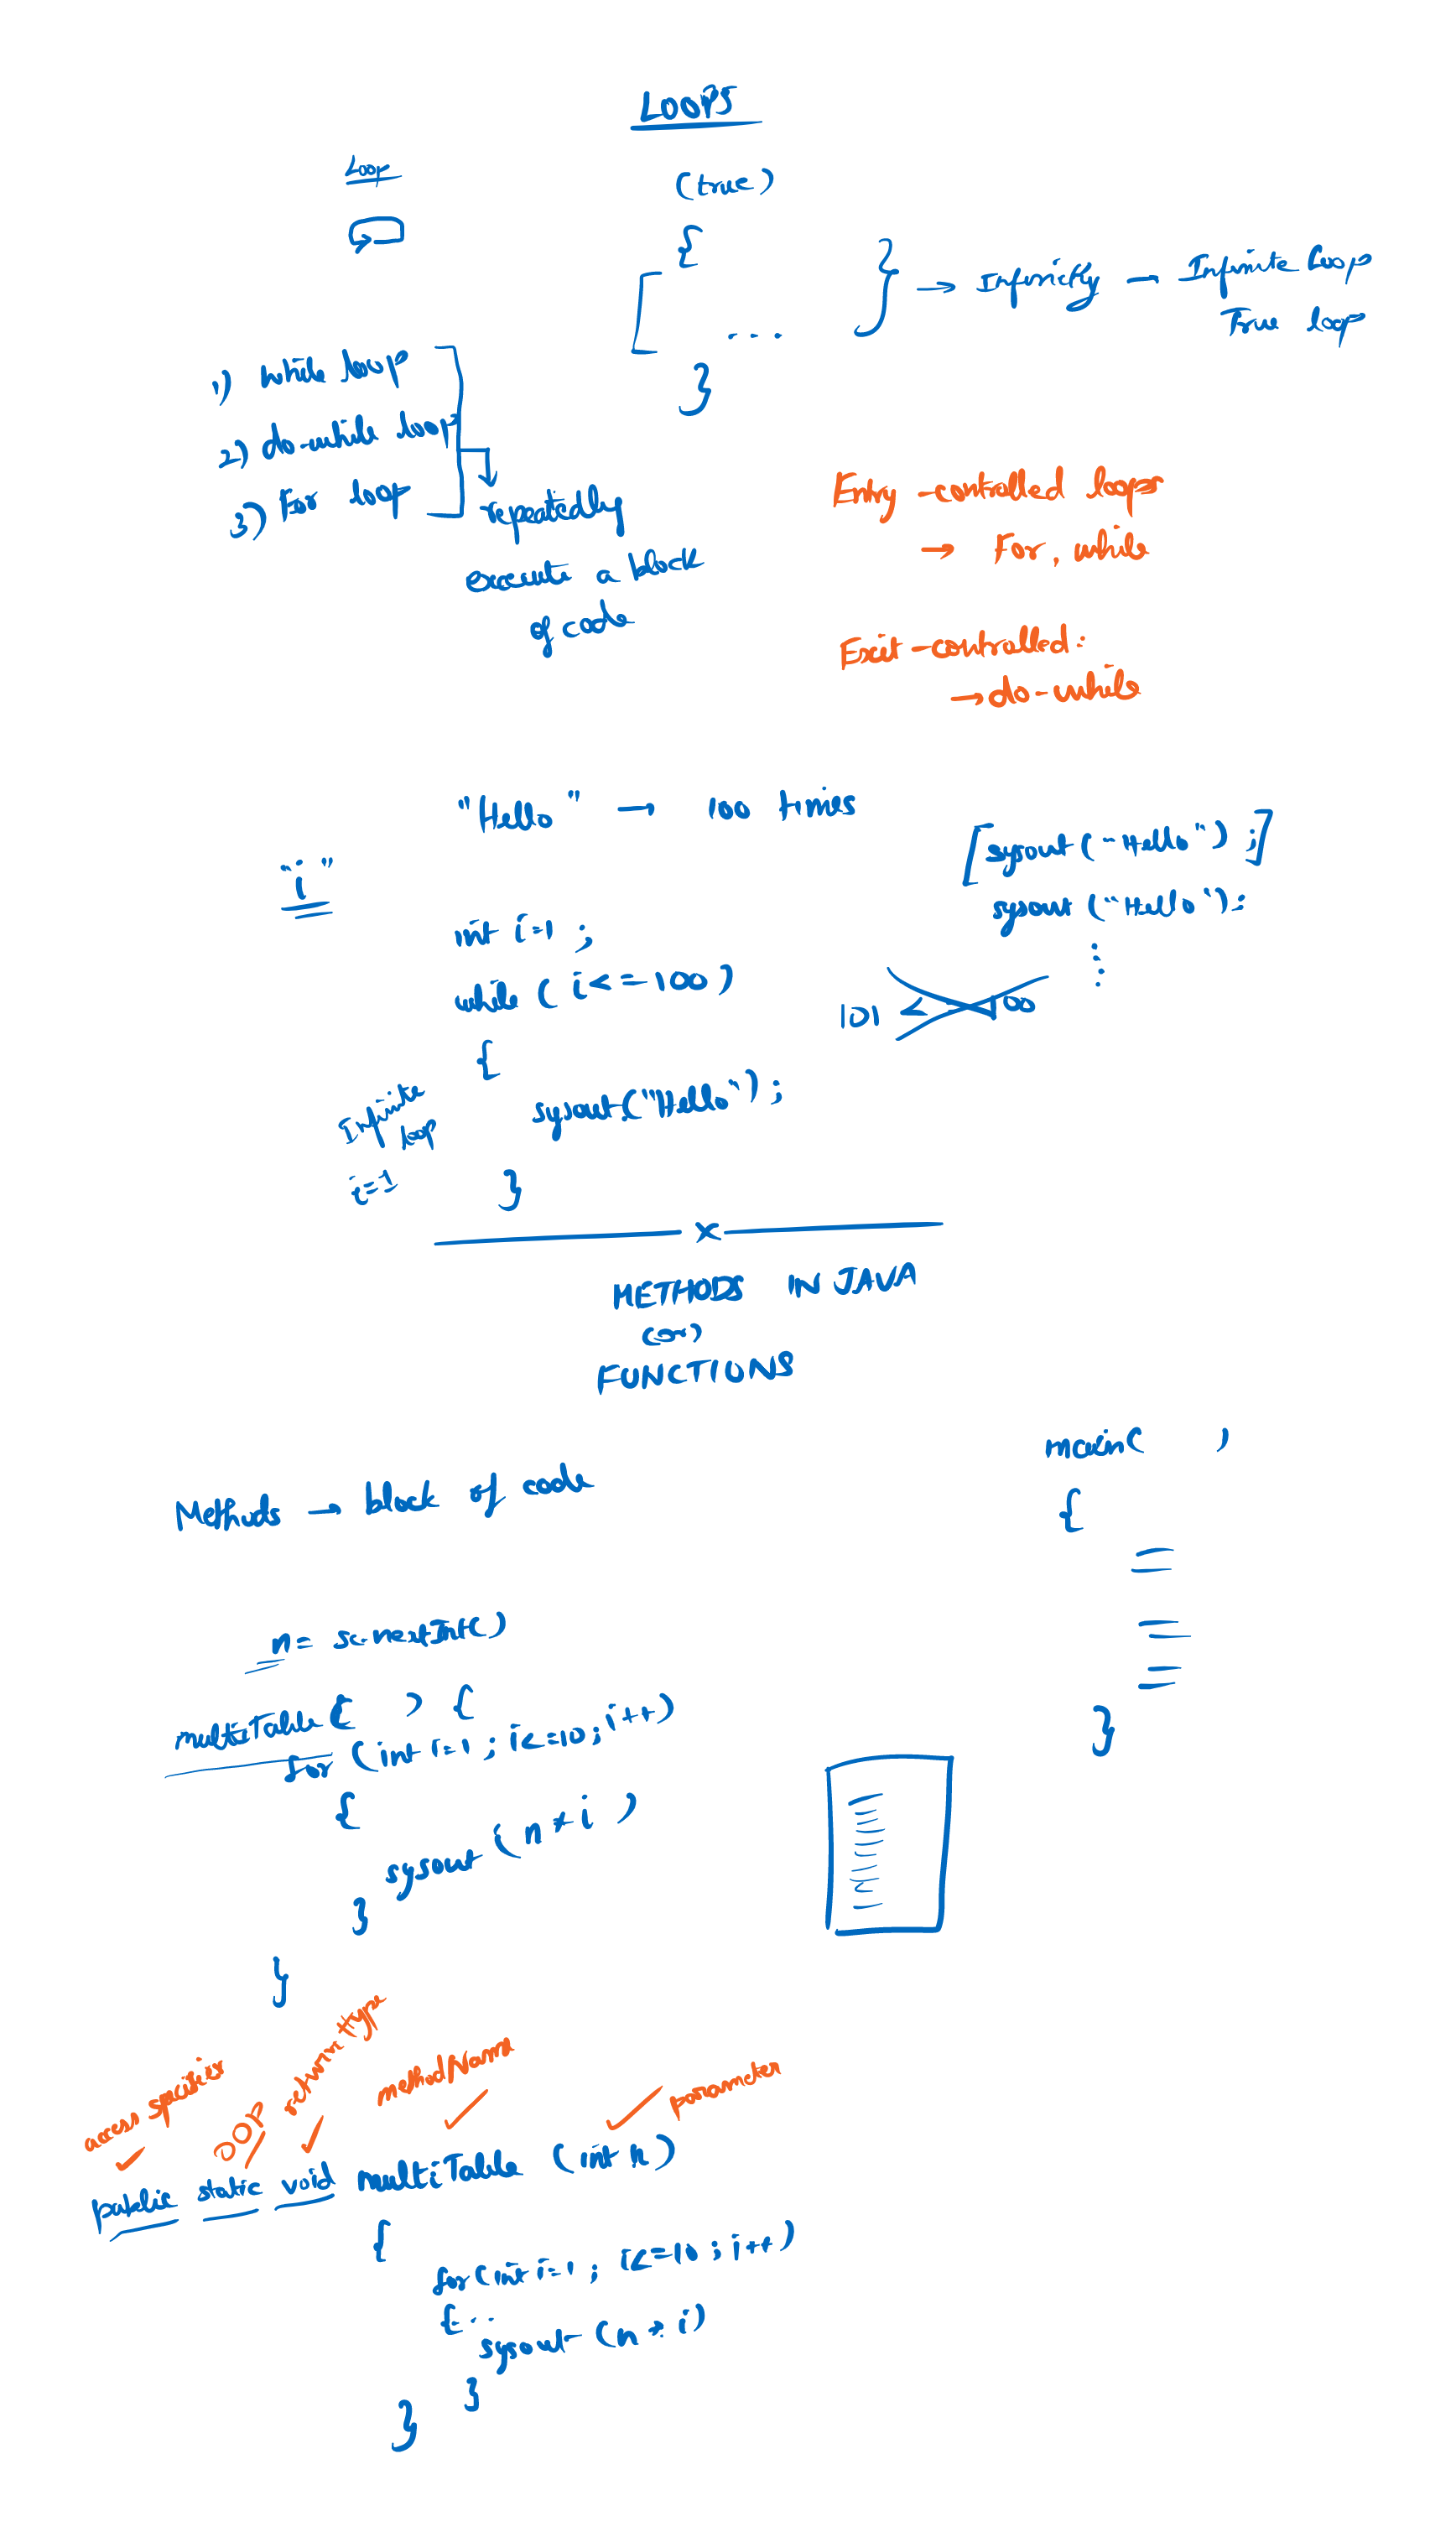 LOOPS
Loop
(true)
{
...
}
} → Infinitely — Infinite Loop
True loop
1) while loop
2) do-while loop
3) For loop
repeatedly
execute a block
of code
Entry -controlled loops
→ For, while
Exit -controlled:
→ do-while
"Hello" → 100 times
"i"
[sysout("Hello");]
sysout ("Hello");
⋮
int i=1 ;
while ( i<=100 )
101 <= 100
{
sysout("Hello");
}
Infinite
loop
i=1
x
METHODS IN JAVA
(or)
FUNCTIONS
Methods → block of code
main( )
{
}
n= sc.nextInt()
multiTable ( ) {
for (int i=1 ; i<=10; i++)
{
sysout ( n * i )
}
}
access specifier
OOP
return type
methodName
parameter
public static void multiTable (int n)
{
for(int i=1 ; i<=10 ; i++)
{..
sysout (n * i)
}
}